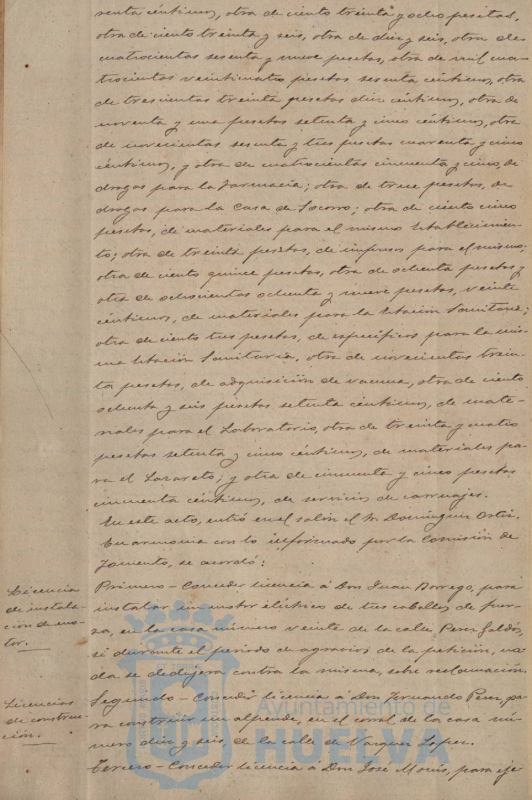 renta céntimos, otra de ciento treinta y ocho pesetas,
otra de ciento treinta y seis, otra de diez y seis, otra de
cuatrocientas sesenta y nueve pesetas, otra de mil cua-
trocientas veinticuatro pesetas sesenta céntimos, otra
de trescientas treinta pesetas diez céntimos, otra de
noventa y una pesetas setenta y cinco céntimos, otra
de novecientas sesenta y tres pesetas cuarenta y cinco
céntimos, y otra de cuatrocientas cincuenta y cinco, de
drogas para la Farmacia; otra de trece pesetas, de
drogas para la Casa de Socorro; otra de ciento cinco
pesetas, de materiales para el mismo Establecimien-
to; otra de treinta pesetas, de impresos para el mismo;
otra de ciento quince pesetas, otra de ochenta pesetas y
otra de ochocientas ochenta y nueve pesetas, veinte
céntimos, de materiales para la Estación Sanitaria;
otra de ciento tres pesetas, de específicos para la mis-
ma Estación Sanitaria, otra de novecientas trein-
ta pesetas, de adquisición de vacuna, otra de ciento
ochenta y seis pesetas setenta céntimos, de mate-
riales para el Laboratorio, otra de treinta y cuatro
pesetas setenta y cinco céntimos, de materiales pa-
ra el Lazareto; y otra de cincuenta y cinco pesetas
cincuenta céntimos, de servicio de carruajes.
En este acto, entró en el salón el Sr. Domínguez Ortiz.
En armonía con lo informado por la Comisión de
Fomento, se acordó:
Licencia
de instala
ción de mo-
tor.
Primero - Conceder licencia á Don Juan Borrego, para
instalar un motor eléctrico de tres caballos de fuer-
za, en la casa número veinte de la calle Perez Galdós,
si durante el período de agravios de la petición, na-
da se dedujera contra la misma, sobre reclamación.
Licencias
de construc-
ción.
Segundo - Conceder licencia á Don Fernando Perez, pa-
ra construir un alpende, en el corral de la casa nú-
mero diez y seis, de la calle de Vazquez Lopez.
Tercero - Conceder licencia á Don José para eje
Ayuntamiento de
HUELVA